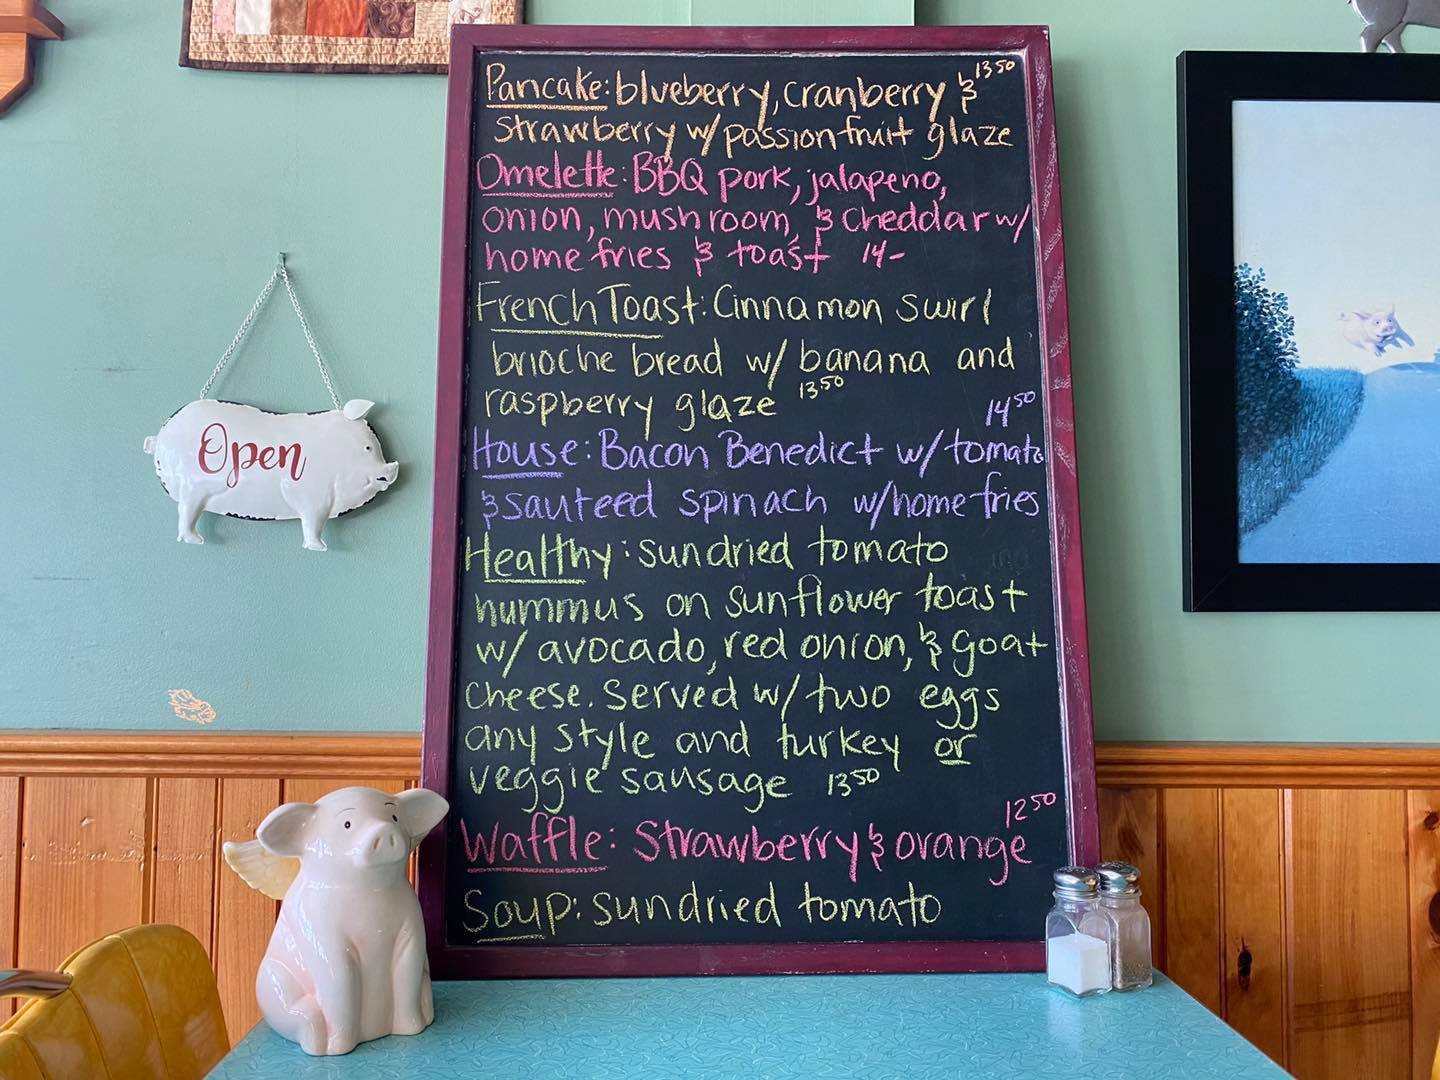 Pancake: blueberry, cranberry & 13.50
strawberry w/ passionfruit glaze
Omelette: BBQ pork, jalapeno,
onion, mushroom, & cheddar w/
home fries & toast 14-
French Toast: Cinnamon swirl
brioche bread w/ banana and
raspberry glaze 13.50
14.50
House: Bacon Benedict w/ tomato
& sauteed spinach w/ home fries
Healthy: sundried tomato
hummus on sunflower toast
w/ avocado, red onion, & goat
cheese. Served w/ two eggs
any style and turkey or
veggie sausage 13.50
12.50
Waffle: Strawberry & orange
Soup: sundried tomato
Open